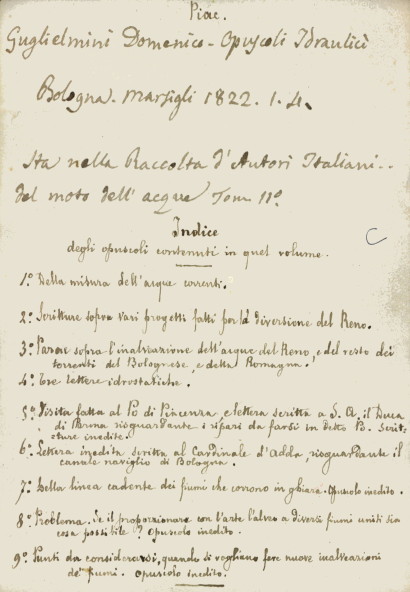 Piac.
Guglielmini Domenico - Opuscoli Idraulici
Bologna. Marsigli 1822. 1. 4.
Sta nella Raccolta d'Autori Italiani..
del moto dell'acque Tom 11º
Indice
degli opuscoli contenuti in quel volume.
C
1º Della misura dell'acque correnti.
2º Scritture sopra vari progetti fatti per la diversione del Reno.
3º Parere sopra l'inalveazione dell'acque del Reno, e del resto dei
torrenti del Bolognese, e della Romagna.
4º Tre lettere idrostatiche.
5º Visita fatta al Pò di Piacenza, e lettera scritta a S. A. il Duca
di Parma risguardante i ripari da farsi in detto Po. Scrit-
ture inedite.
6º Lettera inedita scritta al Cardinale d'Adda, risguardante il
canale naviglio di Bologna.
7º Della linea cadente dei fiumi che corrono in ghiara. Opuscolo inedito.
8º Problema. Se il proporzionare con l'arte l'alveo a diversi fiumi uniti sia
cosa possibile? Opuscolo inedito.
9º Punti da considerarsi, quando si vogliano fare nuove inalveazioni
de' fiumi. Opuscolo inedito.